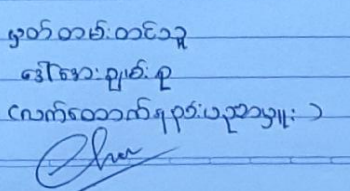 မှတ်တမ်းတင်သူ
ဒေါ်အေးချမ်းစု
(လက်ထောက်ရာဇဝင်ပညာမှူး)